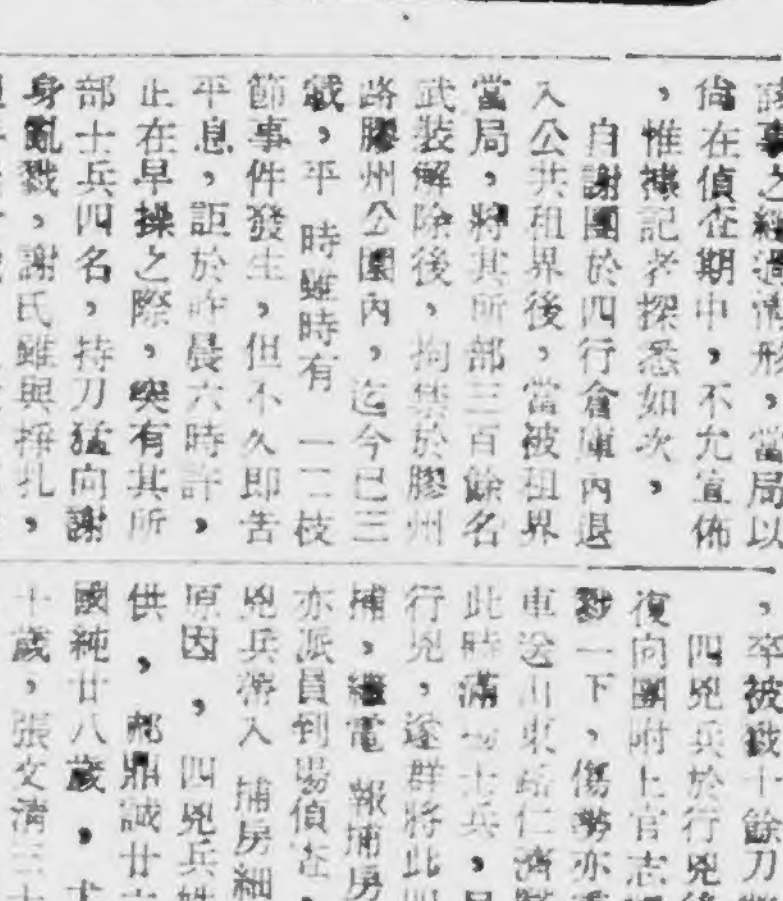 該事之經過情形，當局以
尙在偵查期中，不允宣佈
，惟據記者探悉如次，
自謝團於四行倉庫內退
入公共租界後，當被租界
當局，將其所部三百餘名
武裝解除後，拘禁於膠州
路膠州公園內，迄今已三
載，平時雖時有一二枝
節事件發生，但不久即告
平息，詎於昨晨六時許，
正在早操之際，突有其所
部士兵四名，持刀猛向謝
身亂戮，謝氏雖與掙扎，
，卒被戮十餘刀
四兇兵於行兇後
復向團附上官志
戮一下，傷勢亦重
車送山東路仁濟醫
此時滿場士兵，見
行兇，遂群將此四
捕，繼電報捕房
亦派員到場偵查，
兇兵帶入捕房細
原因，四兇兵姓
供，郝鼎誠廿六
國純廿八歲，尤
十歲，張文清三十